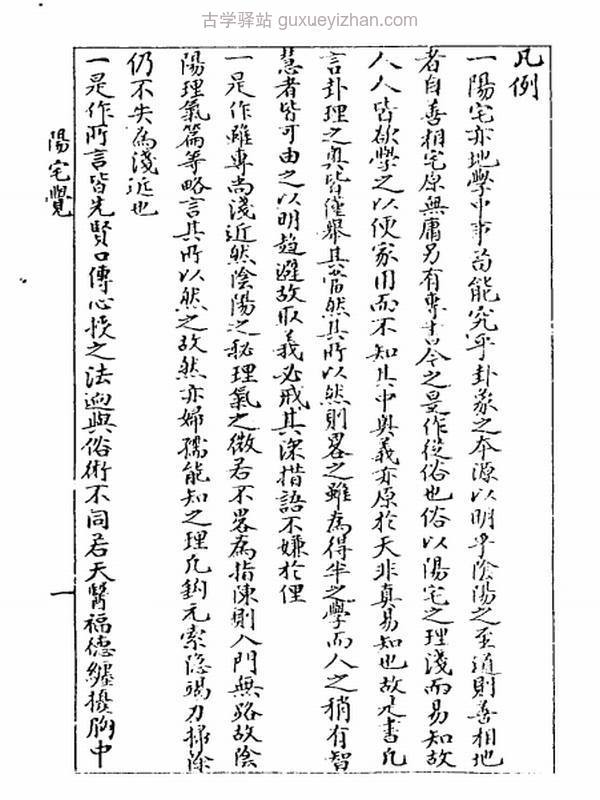 古学驿站 guxueyizhan.com
凡例
一陽宅亦地學中事苟能究乎卦象之本源以明乎陰陽之至道則善相地
者自善相宅原無庸另有專書今之是作從俗也俗以陽宅之理淺而易知故
人人皆欲學之以便家用而不知其中奧義亦原於天非真易知也故是書凡
言卦理之奧皆僅舉其當然其所以然則畧之雖為得半之學而人之稍有智
慧者皆可由之以明趨避故取義必戒其深措語不嫌於俚
一是作雖專尚淺近然陰陽之秘理氣之微若不畧為指陳則入門無路故陰
陽理氣篇等略言其所以然之故然亦婦孺能知之理凡鈎元索隐竭力掃除
仍不失為淺近也
一是作所言皆先賢口傳心授之法迥與俗術不同若天醫福德纏擾胸中
陽宅覺
一